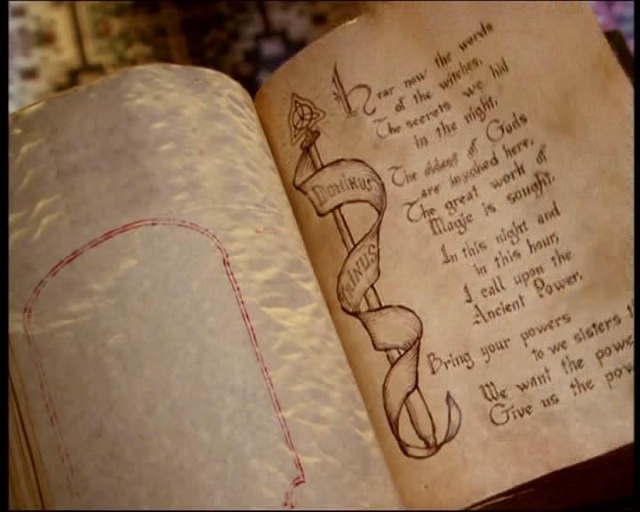 Hear now the words
of the witches,
The secrets we hid
in the night.
The oldest of Gods
are invoked here,
The great work of
Magic is sought.
In this night and
in this hour,
I call upon the
Ancient Power.
Bring your powers
to we sisters
We want the
Give us the
DOMINUS